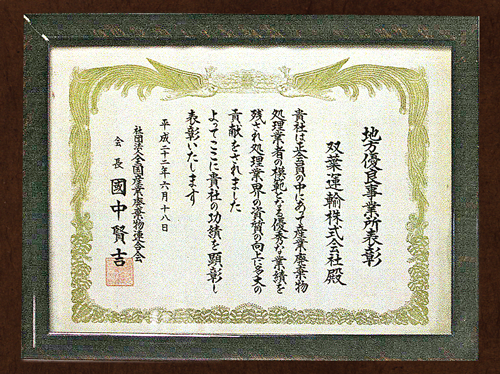 地方優良事業所表彰
双葉運輸株式会社殿
貴社は正会員の中にあって産業廃棄物
処理業者の模範となる優秀な業績を
残され処理業界の資質の向上に多大の
貢献をされました
よってここに貴社の功績を顕彰し
表彰いたします
平成二十二年六月十八日
社団法人全国産業廃棄物連合会
会長 國中賢吉